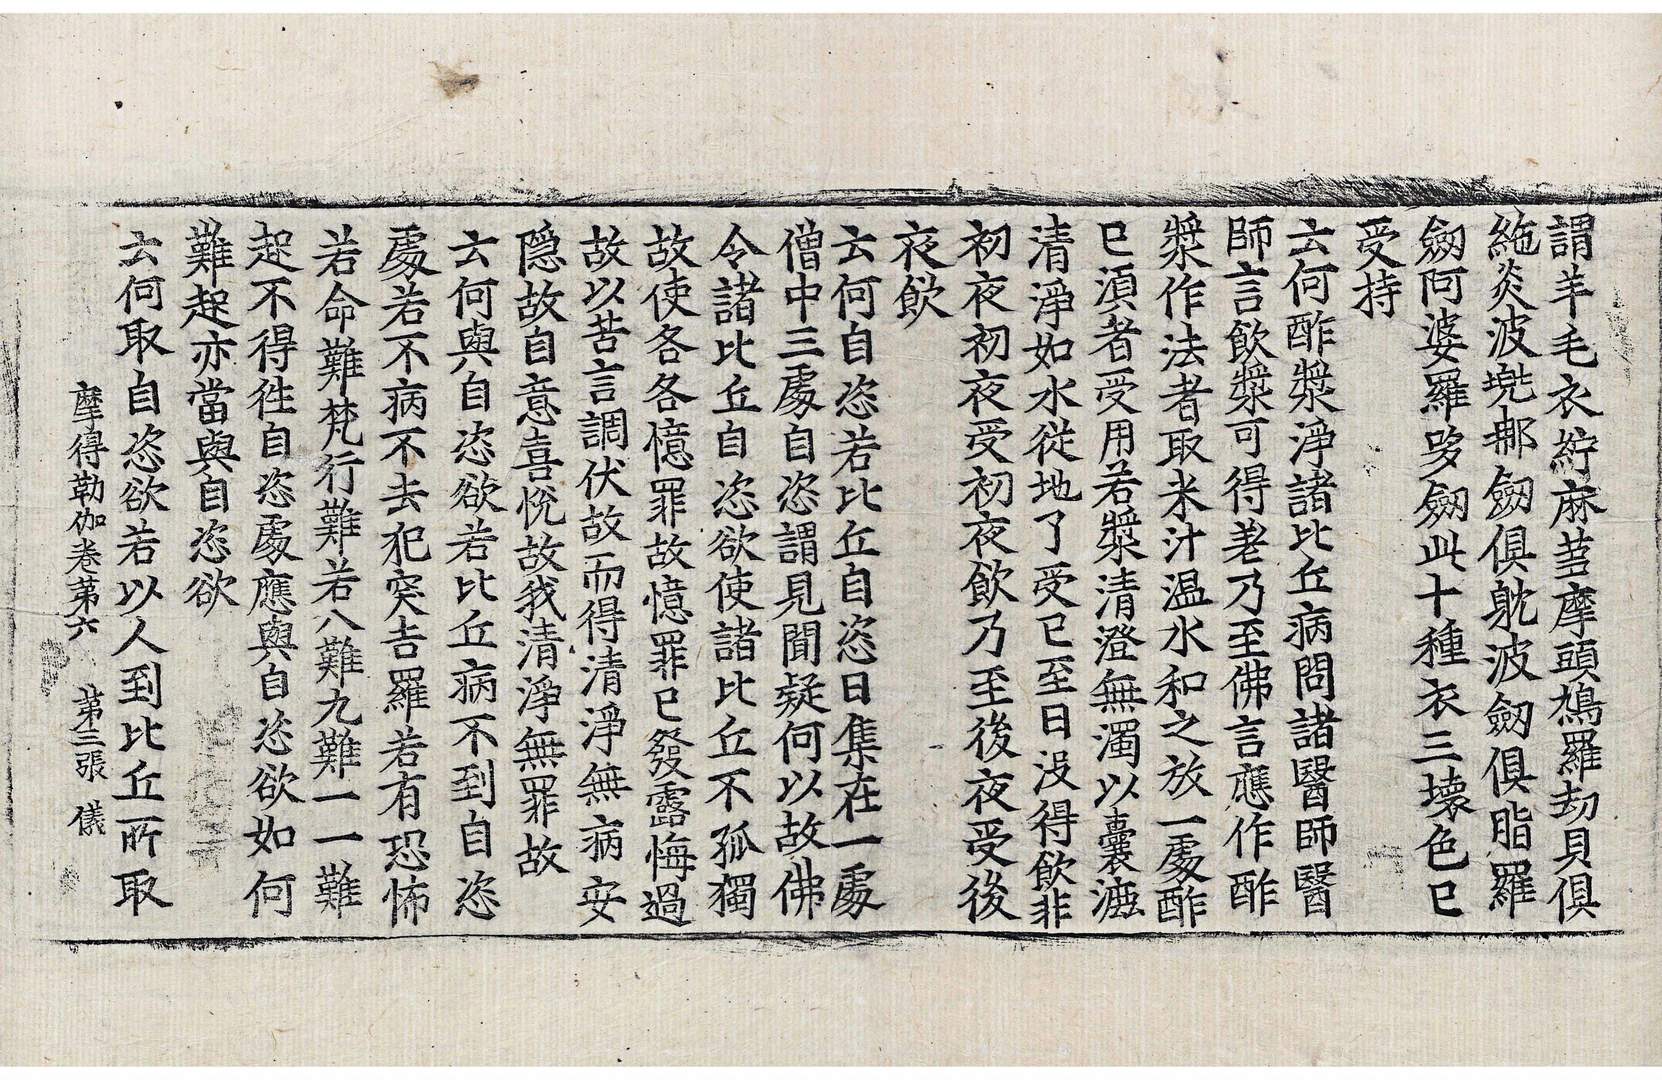 謂羊毛衣紵麻荳摩頭鳩羅劫貝俱
絁炎波兠那劔俱躭波劔俱脂羅
劔阿婆羅哆劔此十種衣三壞色已
受持
云何酢漿淨諸比丘病問諸醫師醫
師言飲漿可得差乃至佛言應作酢
漿作法者取米汁温水和之放一處酢
已湏者受用若漿清澄無濁以囊漉
清淨如水從地了受已至日没得飲非
初夜初夜受初夜飲乃至後夜受後
夜飲
云何自恣若比丘自恣日集在一處
僧中三處自恣謂見聞疑何以故佛
令諸比丘自恣欲使諸比丘不孤獨
故使各各憶罪故憶罪已發露悔過
故以苦言調伏故而得清淨無病安
隱故自意喜悅故我清淨無罪故
云何與自恣欲若比丘病不到自恣
處若不病不去犯突吉羅若有恐怖
若命難梵行難若八難九難一一難
起不得徃自恣處應與自恣欲如何
難起亦當與自恣欲
云何取自恣欲若以人到比丘所取
摩得勒伽卷第六 第三張 儀